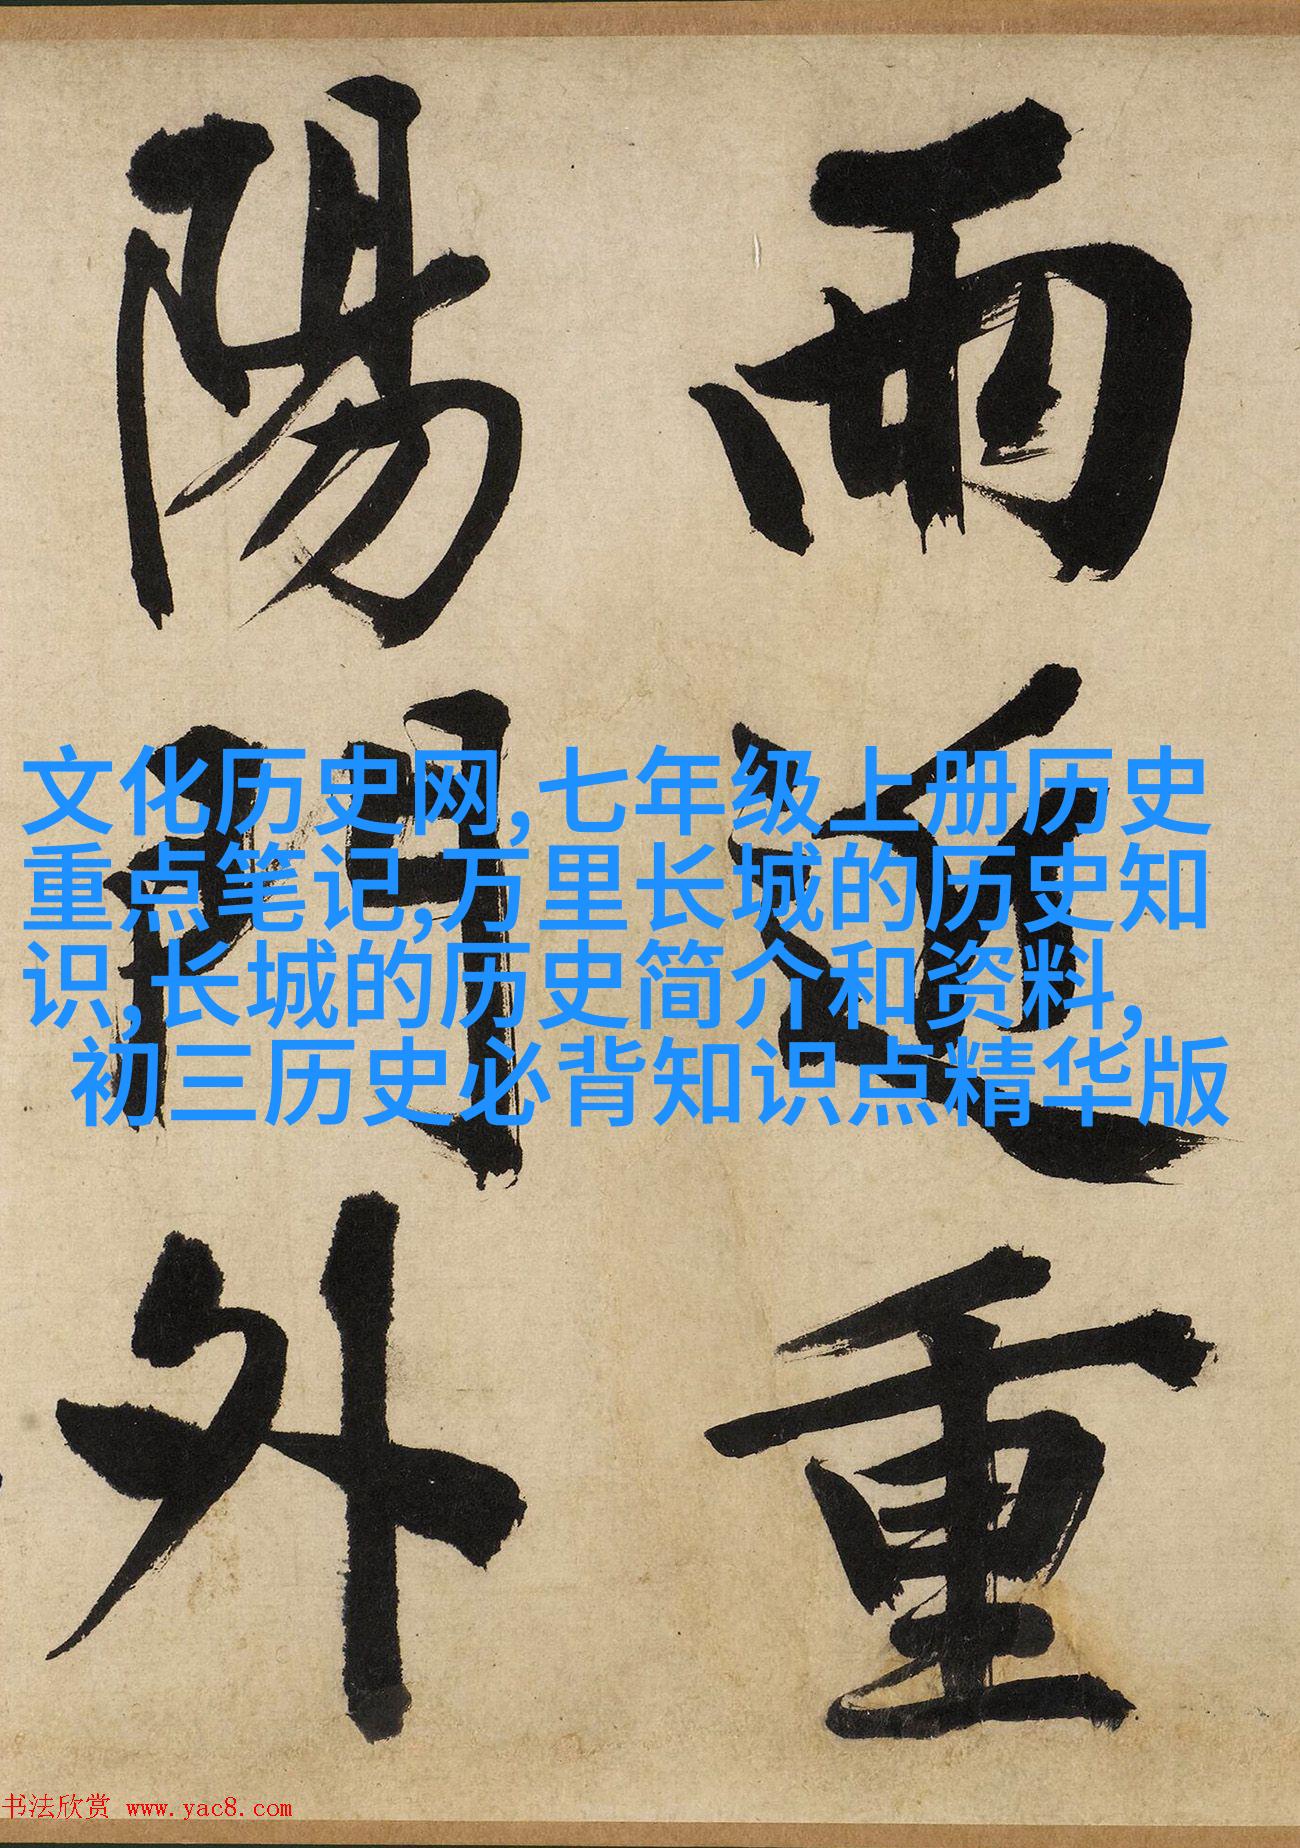 雨近重
陽門外
文化历史网,七年级上册历史
重点笔记,万里长城的历史知
识,长城的历史简介和资料,
初三历史必背知识点精华版
书法欣赏 www.yac8.com